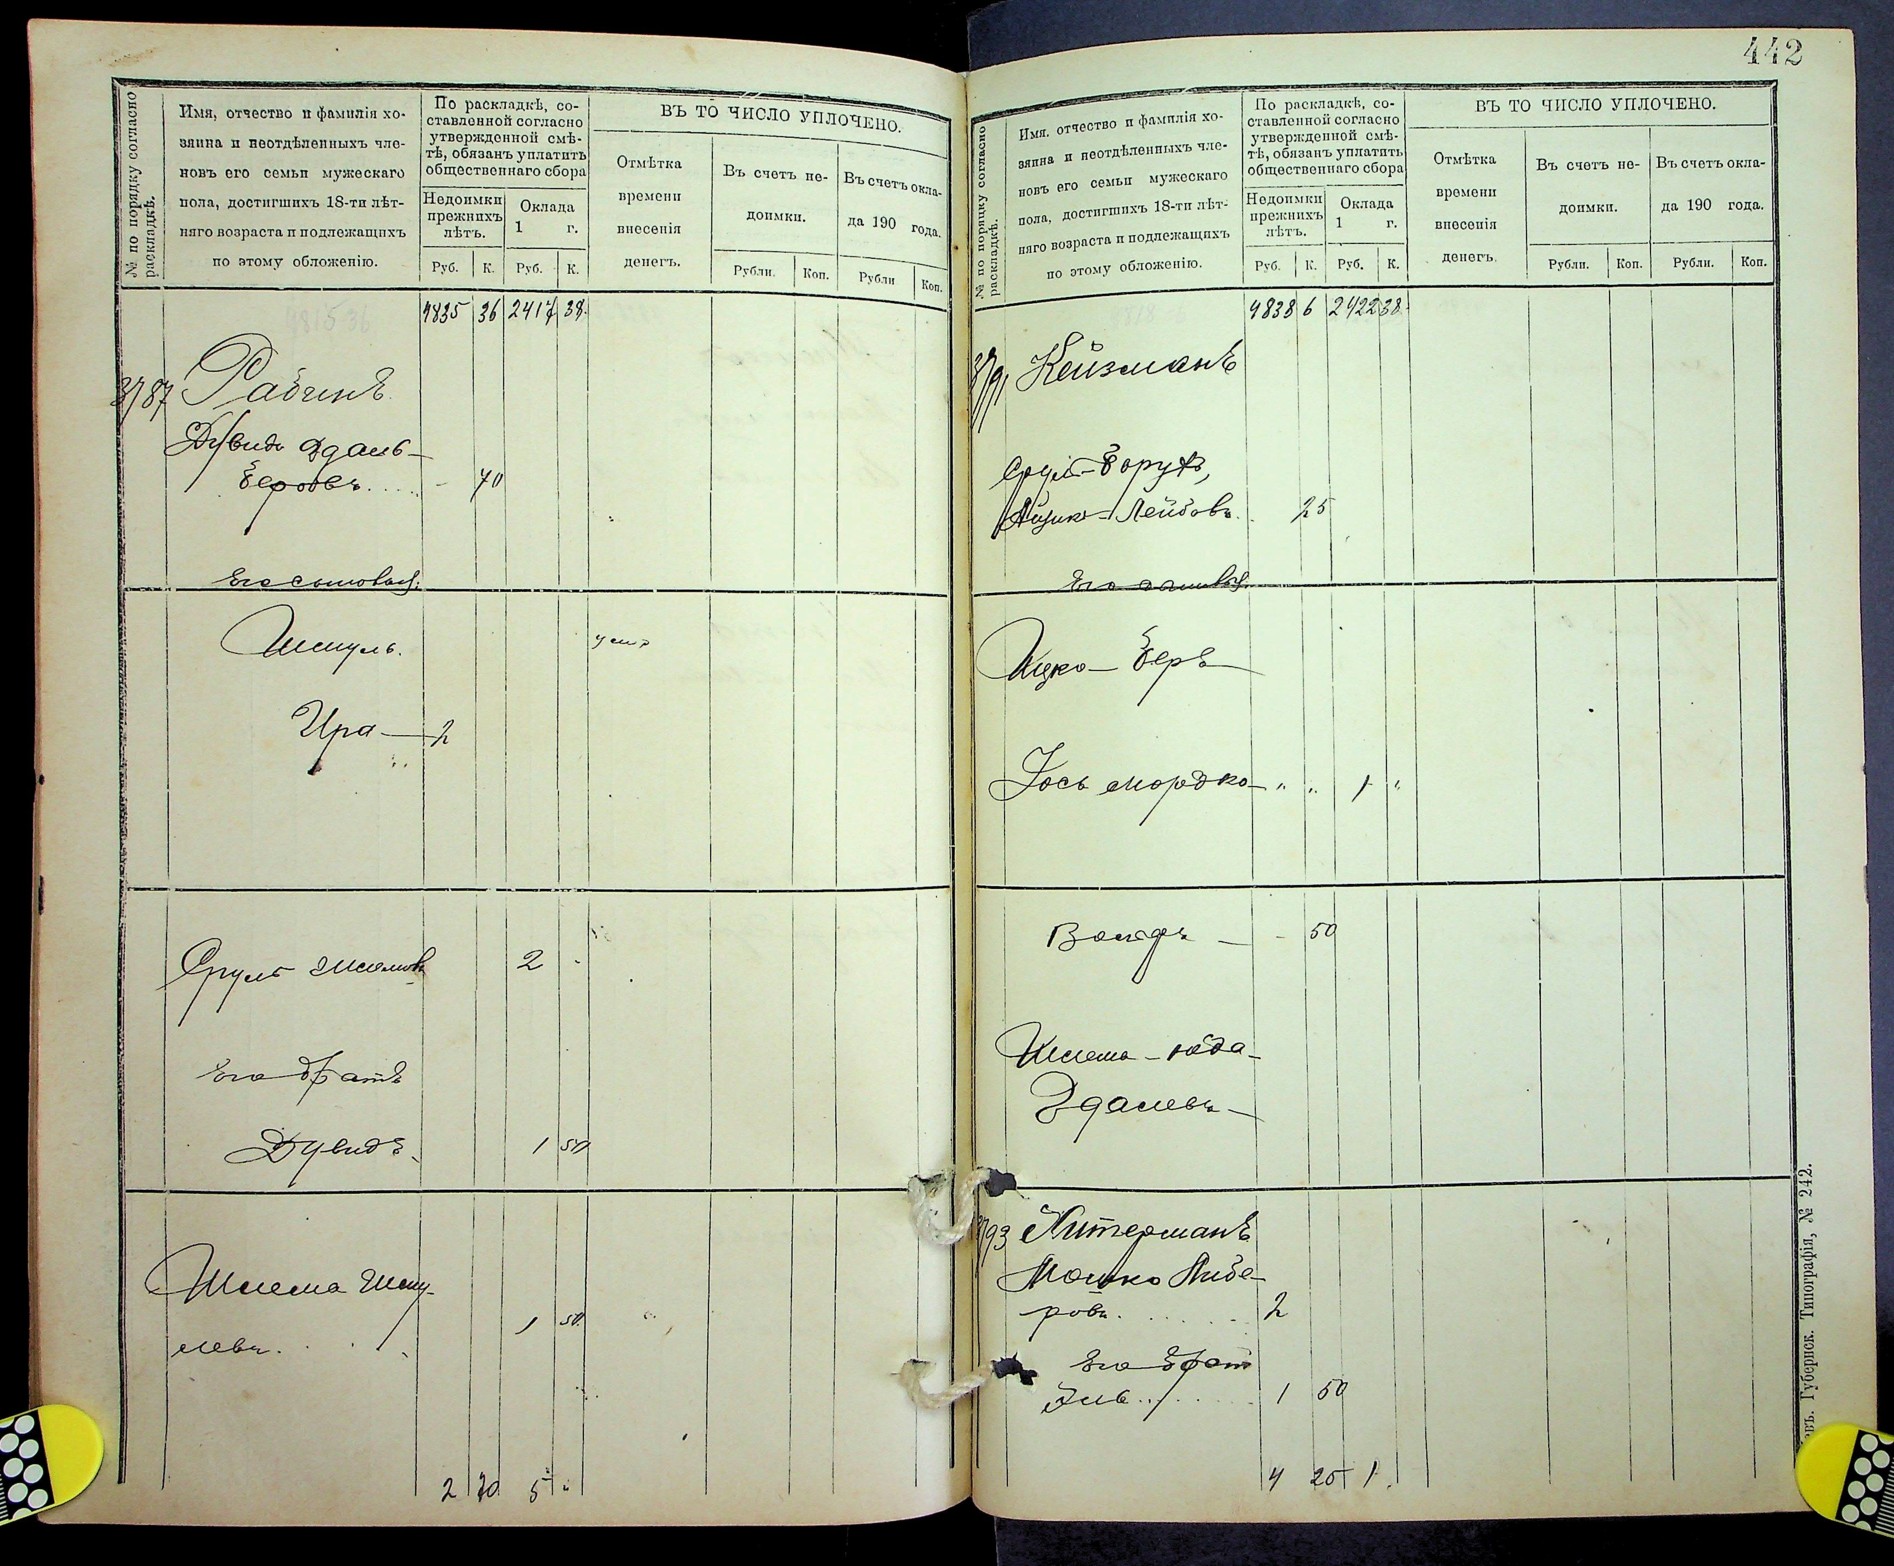 442
№ по порядку согласно раскладкѣ.
Имя, отчество и фамилія хо-
зяина и неотдѣленныхъ чле-
новъ его семьи мужескаго
пола, достигшихъ 18-ти лѣт-
няго возраста и подлежащихъ
по этому обложенію.
По раскладкѣ, со-
ставленной согласно
утвержденной смѣ-
тѣ, обязанъ уплатить
общественнаго сбора
Недоимки
прежнихъ
лѣтъ.
Оклада
1 г.
Руб. К. Руб. К.
ВЪ ТО ЧИСЛО УПЛОЧЕНО.
Отмѣтка
времени
внесенія
денегъ.
Въ счетъ не-
доимки.
Рубли. Коп.
Въ счетъ окла-
да 190 года.
Рубли Коп.
4835 36 2417 38.
3787 Рабинъ
Дувидъ Эдаль-
Беровъ..... - 70
Его сыновья:
Шмуль. умъ
Ира — 2
Сруль Шмулев 2 -
Его братъ
Дувидъ. 1 50
Шлема Шму-
левъ. 1 50
2 70 5 "
№ по порядку согласно раскладкѣ.
Имя. отчество и фамилія хо-
зяина и неотдѣленныхъ чле-
новъ его семьи мужескаго
пола, достигшихъ 18-ти лѣт-
няго возраста и подлежащихъ
по этому обложенію.
По раскладкѣ, со-
ставленной согласно
утвержденной смѣ-
тѣ, обязанъ уплатить
общественнаго сбора
Недоимки
прежнихъ
лѣтъ.
Оклада
1 г.
Руб. К. Руб. К.
ВЪ ТО ЧИСЛО УПЛОЧЕНО.
Отмѣтка
времени
внесенія
денегъ.
Въ счетъ не-
доимки.
Рубли. Коп.
Въ счетъ окла-
да 190 года.
Рубли. Коп.
4838 6 2422 38.
3791 Кейзманъ
Сруль-Борухъ,
Ицико-Лейбовъ. 25
Его сыновья:
Ицко-Беръ
Іось Мордко - " " 1 "
Вольфъ — - 50
Шлема-Юда-
Эдалевъ —
3793 Хитерманъ
Мошко Либе-
ровъ. 2
Его брат
Эль... 1 50
4 25 1.
Губернск. Типографія, № 242.